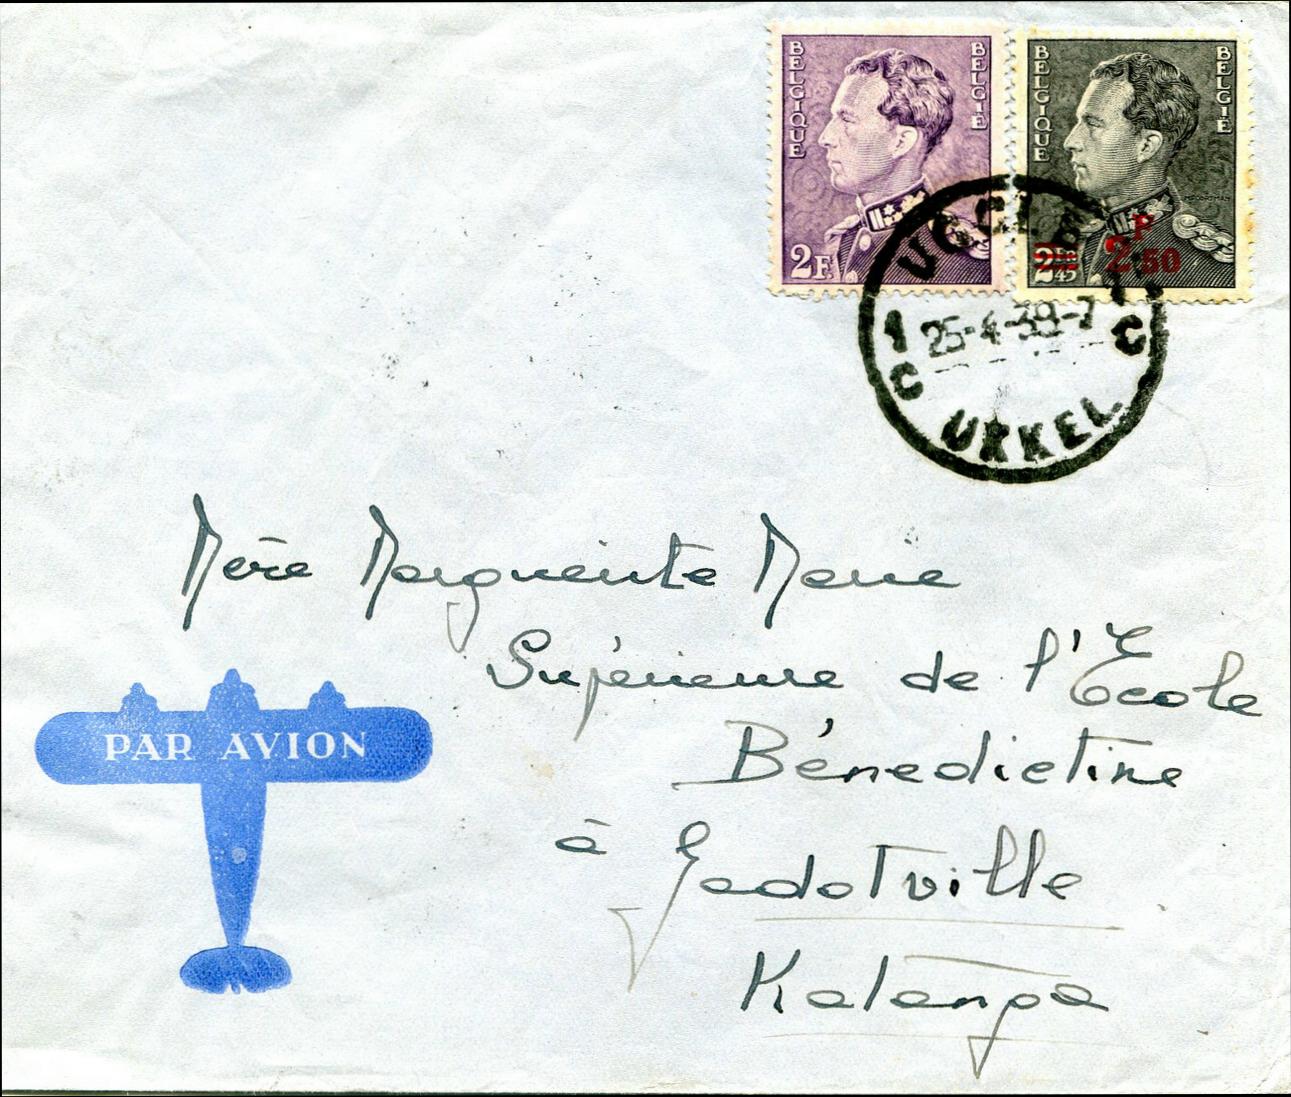 BELGIQUE BELGIË
2F.
BELGIQUE BELGIË
2F50
UCCLE
1 25-4-39-7
C C
UKKEL
Mère Marguerite Marie
Supérieure de l'École
Bénédictine
PAR AVION
à Jadotville
Katanga